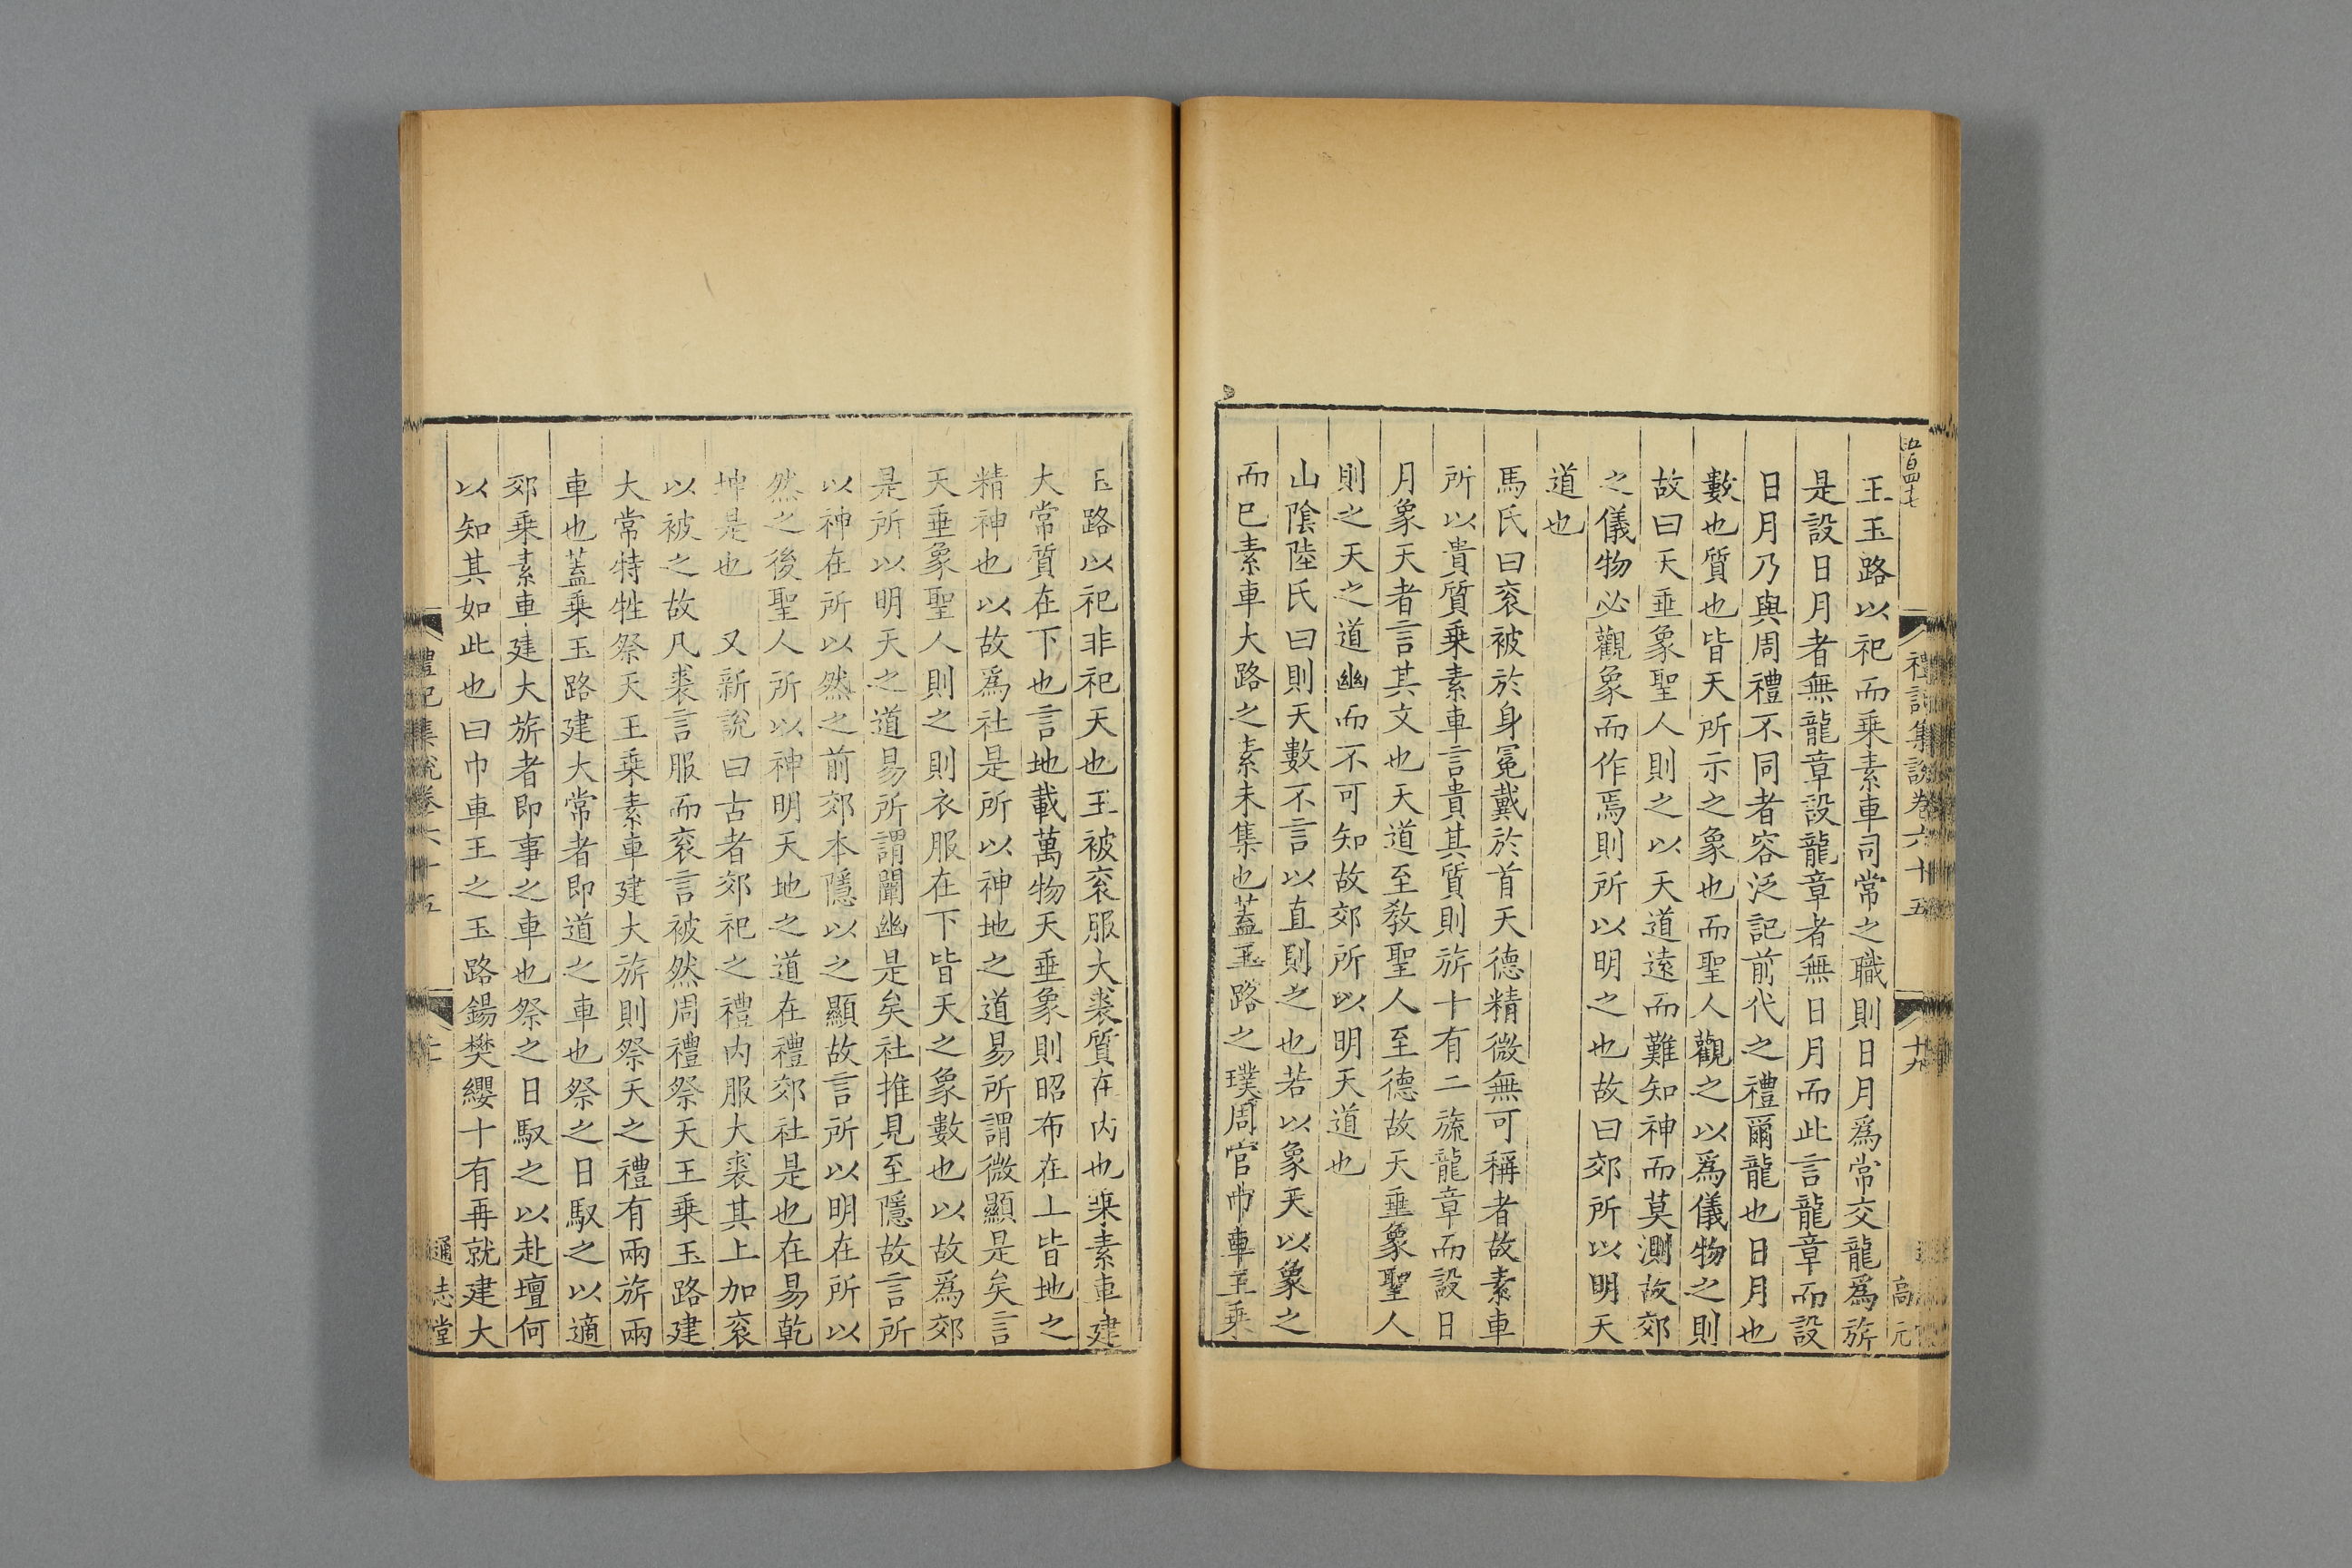 王玉路以祀而乗素車司常之職則日月爲常交龍爲旂
是設日月者無龍章設龍章者無日月而此言龍章而設
日月乃與周禮不同者容泛記前代之禮爾龍也日月也
數也質也皆天所示之象也而聖人觀之以爲儀物之則
故曰天垂象聖人則之以天道遠而難知神而莫測故郊
之儀物必觀象而作焉則所以明之也故曰郊所以明天
道也
馬氏曰衮被於身冕戴於首天德精微無可稱者故素車
所以貴質乗素車言貴其質則旂十有二旒龍章而設日
月象天者言其文也天道至敎聖人至德故天垂象聖人
則之天之道幽而不可知故郊所以明天道也
山隂陸氏曰則天數不言以直則之也若以象天以象之
而已素車大路之素未集也蓋玉路之璞周官巾車王乗
玉路以祀非祀天也王被衮服大裘質在内也乗素車建
大常質在下也言地載萬物天垂象則昭布在上皆地之
精神也以故爲社是所以神地之道易所謂微顯是矣言
天垂象聖人則之則衣服在下皆天之象數也以故爲郊
是所以明天之道易所謂闡幽是矣社推見至隱故言所
以神在所以然之前郊本隱以之顯故言所以明在所以
然之後聖人所以神明天地之道在禮郊社是也在易乾
坤是也　又新說曰古者郊祀之禮内服大裘其上加衮
以被之故凡裘言服而衮言被然周禮祭天王乗玉路建
大常特牲祭天王乗素車建大旂則祭天之禮有兩旂兩
車也蓋乗玉路建大常者即道之車也祭之日馭之以適
郊乗素車建大旂者即事之車也祭之日馭之以赴壇何
以知其如此也曰巾車王之玉路鍚樊纓十有再就建大
禮記集說卷六十五
通志堂